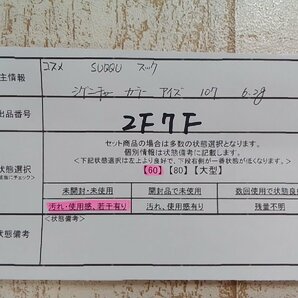 主情報
コスメ SUQQU スック
シグニチャー カラー アイズ 107 6.2g
出品番号
2F7F
状態選択
セット商品の場合は多数の状態となります。
個別情報は状態備考に記載します。
<下記状態選択は左上より良好で、下段右側が一番状態が低くなります。>
【60】【80】【大型】
未開封・未使用
開封品で未使用
数回使用で状態良
汚れ・使用感、若干有り
汚れ、使用感有り
残量不明
状態備考
<状態備考>